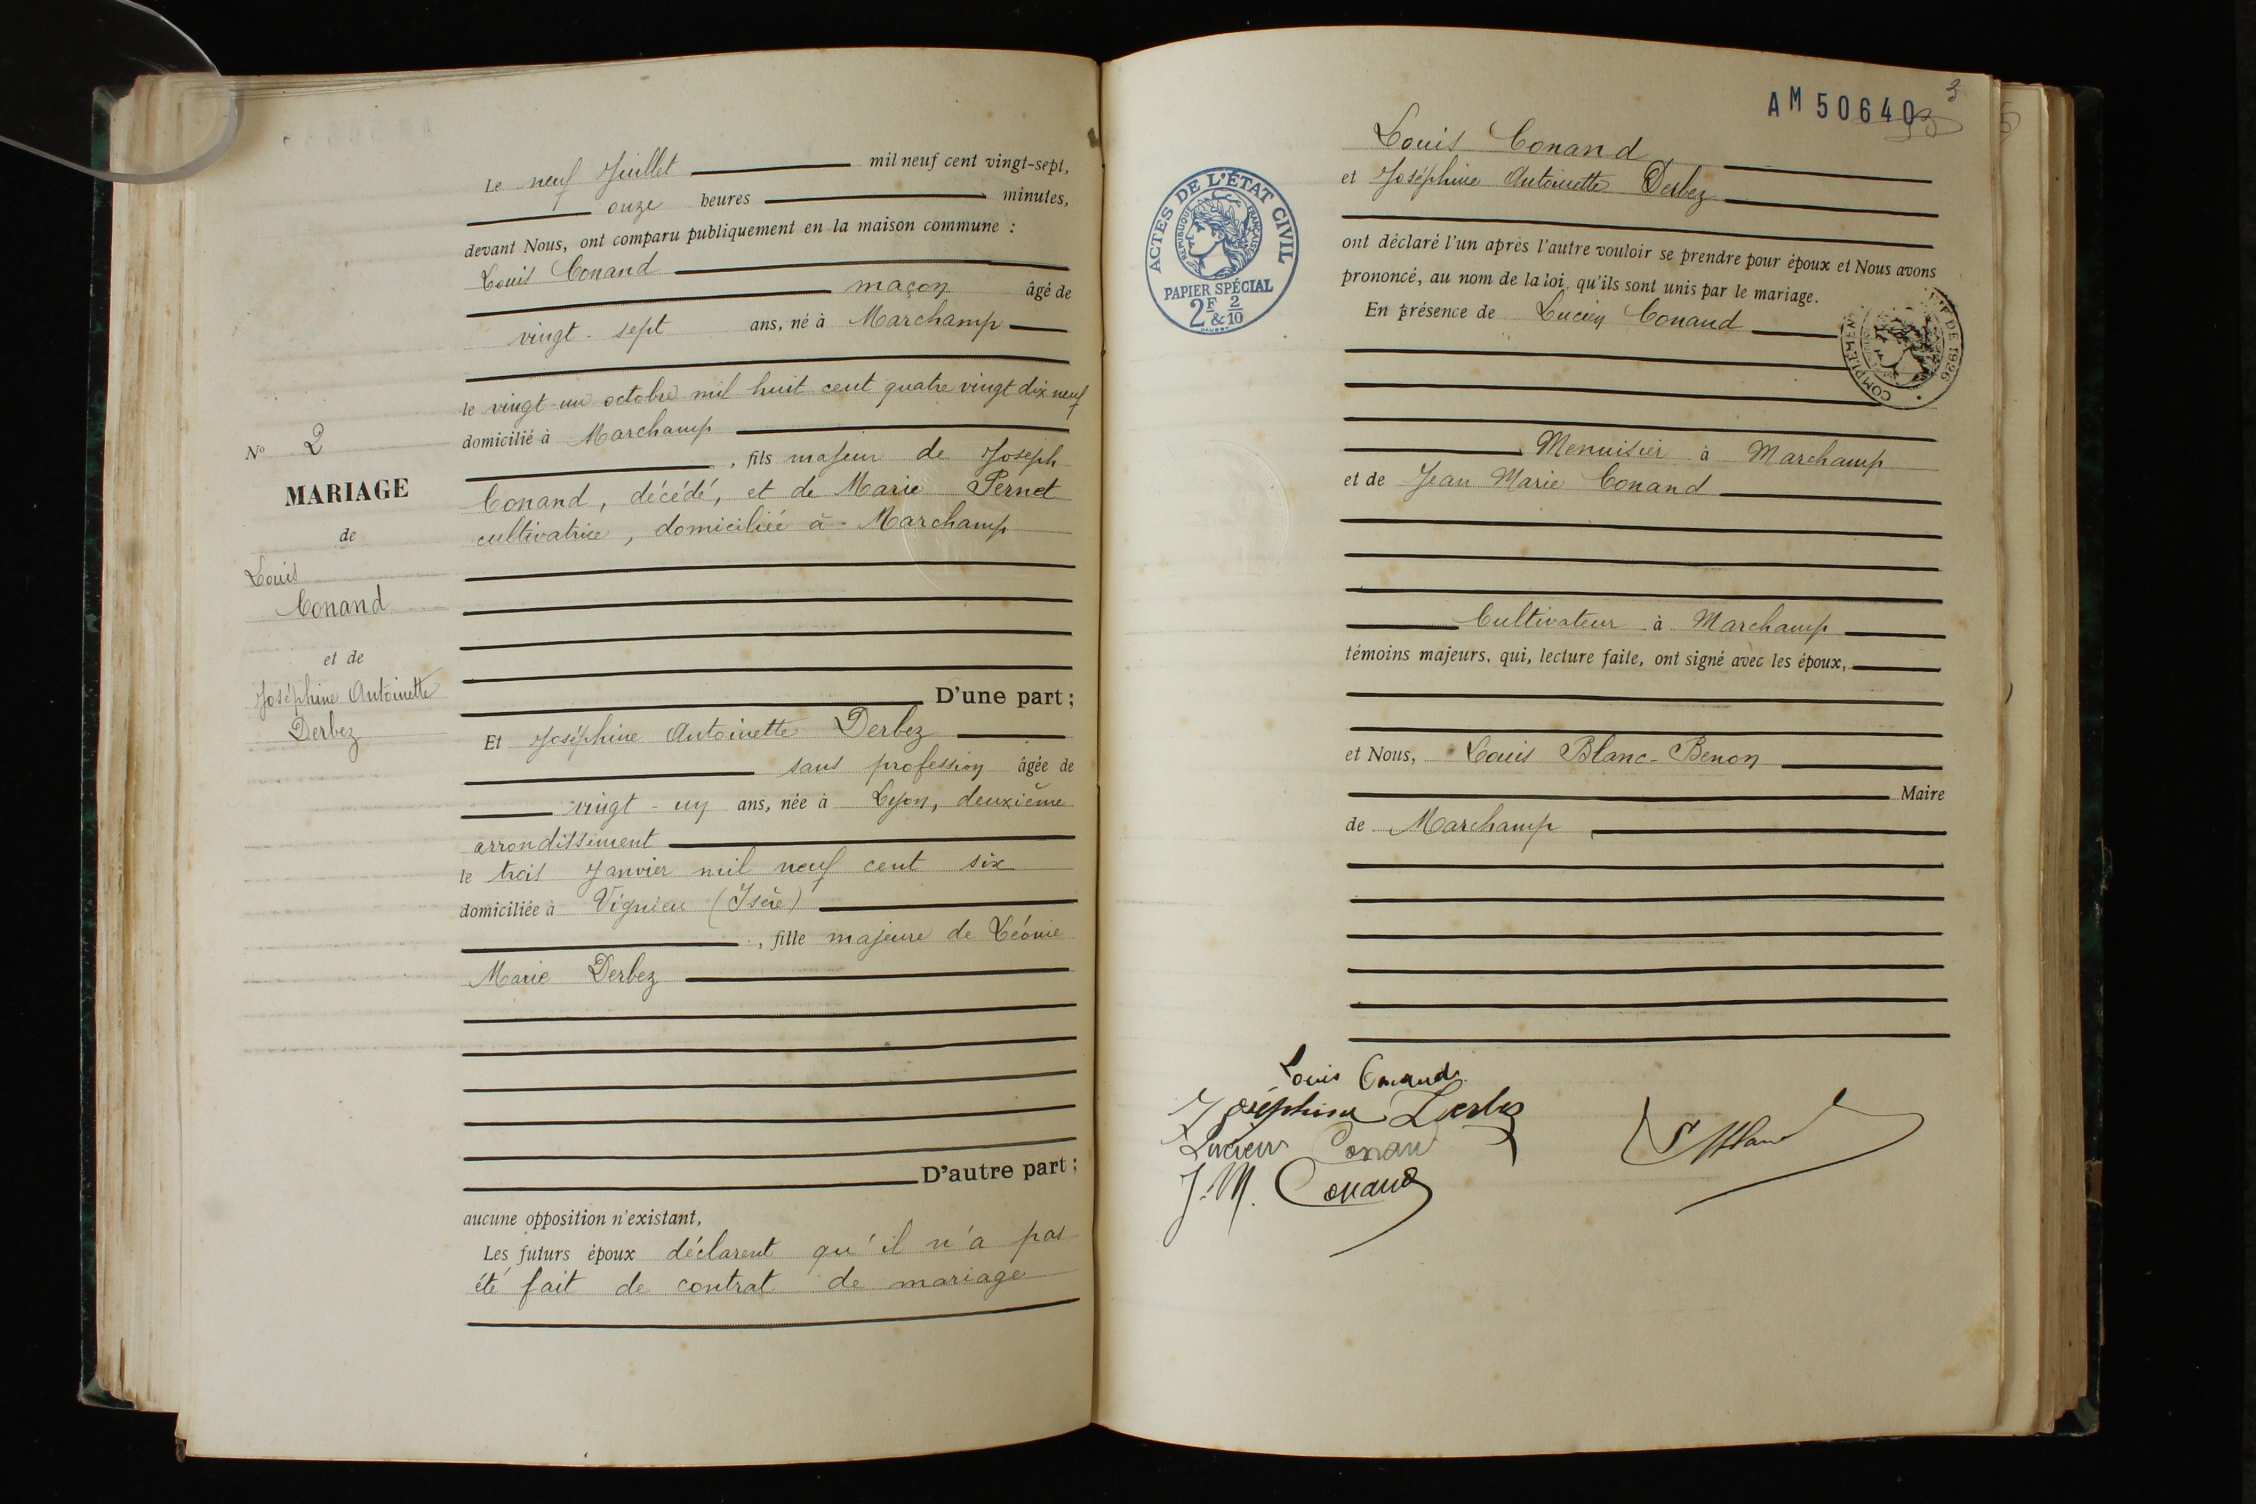 N° 2
MARIAGE
de
Louis
Conand
et de
Joséphine Antoinette
Derbez
Le neuf Juillet mil neuf cent vingt-sept,
onze heures minutes,
devant Nous, ont comparu publiquement en la maison commune :
Louis Conand
maçon âgé de
vingt-sept ans, né à Marchamp
le vingt-un octobre mil huit cent quatre vingt dix neuf
domicilié à Marchamp
, fils majeur de Joseph
Conand, décédé, et de Marie Pernet
cultivatrice, domiciliée à Marchamp
D'une part ;
Et Joséphine Antoinette Derbez
sans profession âgée de
vingt-un ans, née à Lyon, deuxième
arrondissement
le trois Janvier mil neuf cent six
domiciliée à Vignieu (Isère)
, fille majeure de Léonie
Marie Derbez
D'autre part ;
aucune opposition n'existant,
Les futurs époux déclarent qu'il n'a pas
été fait de contrat de mariage
AM 50640
3
Louis Conand
et Joséphine Antoinette Derbez
ACTES DE L'ÉTAT CIVIL
RÉPUBLIQUE FRANÇAISE
PAPIER SPÉCIAL
2F & 2/10
ont déclaré l'un après l'autre vouloir se prendre pour époux et Nous avons
prononcé, au nom de la loi, qu'ils sont unis par le mariage.
En présence de Lucien Conand
DE 1926
Menuisier à Marchamp
et de Jean Marie Conand
Cultivateur à Marchamp
témoins majeurs, qui, lecture faite, ont signé avec les époux,
et Nous, Louis Blanc-Benon
Maire
de Marchamp
Louis Conand
Joséphine Derbez
Lucien Conand
J. M. Conand